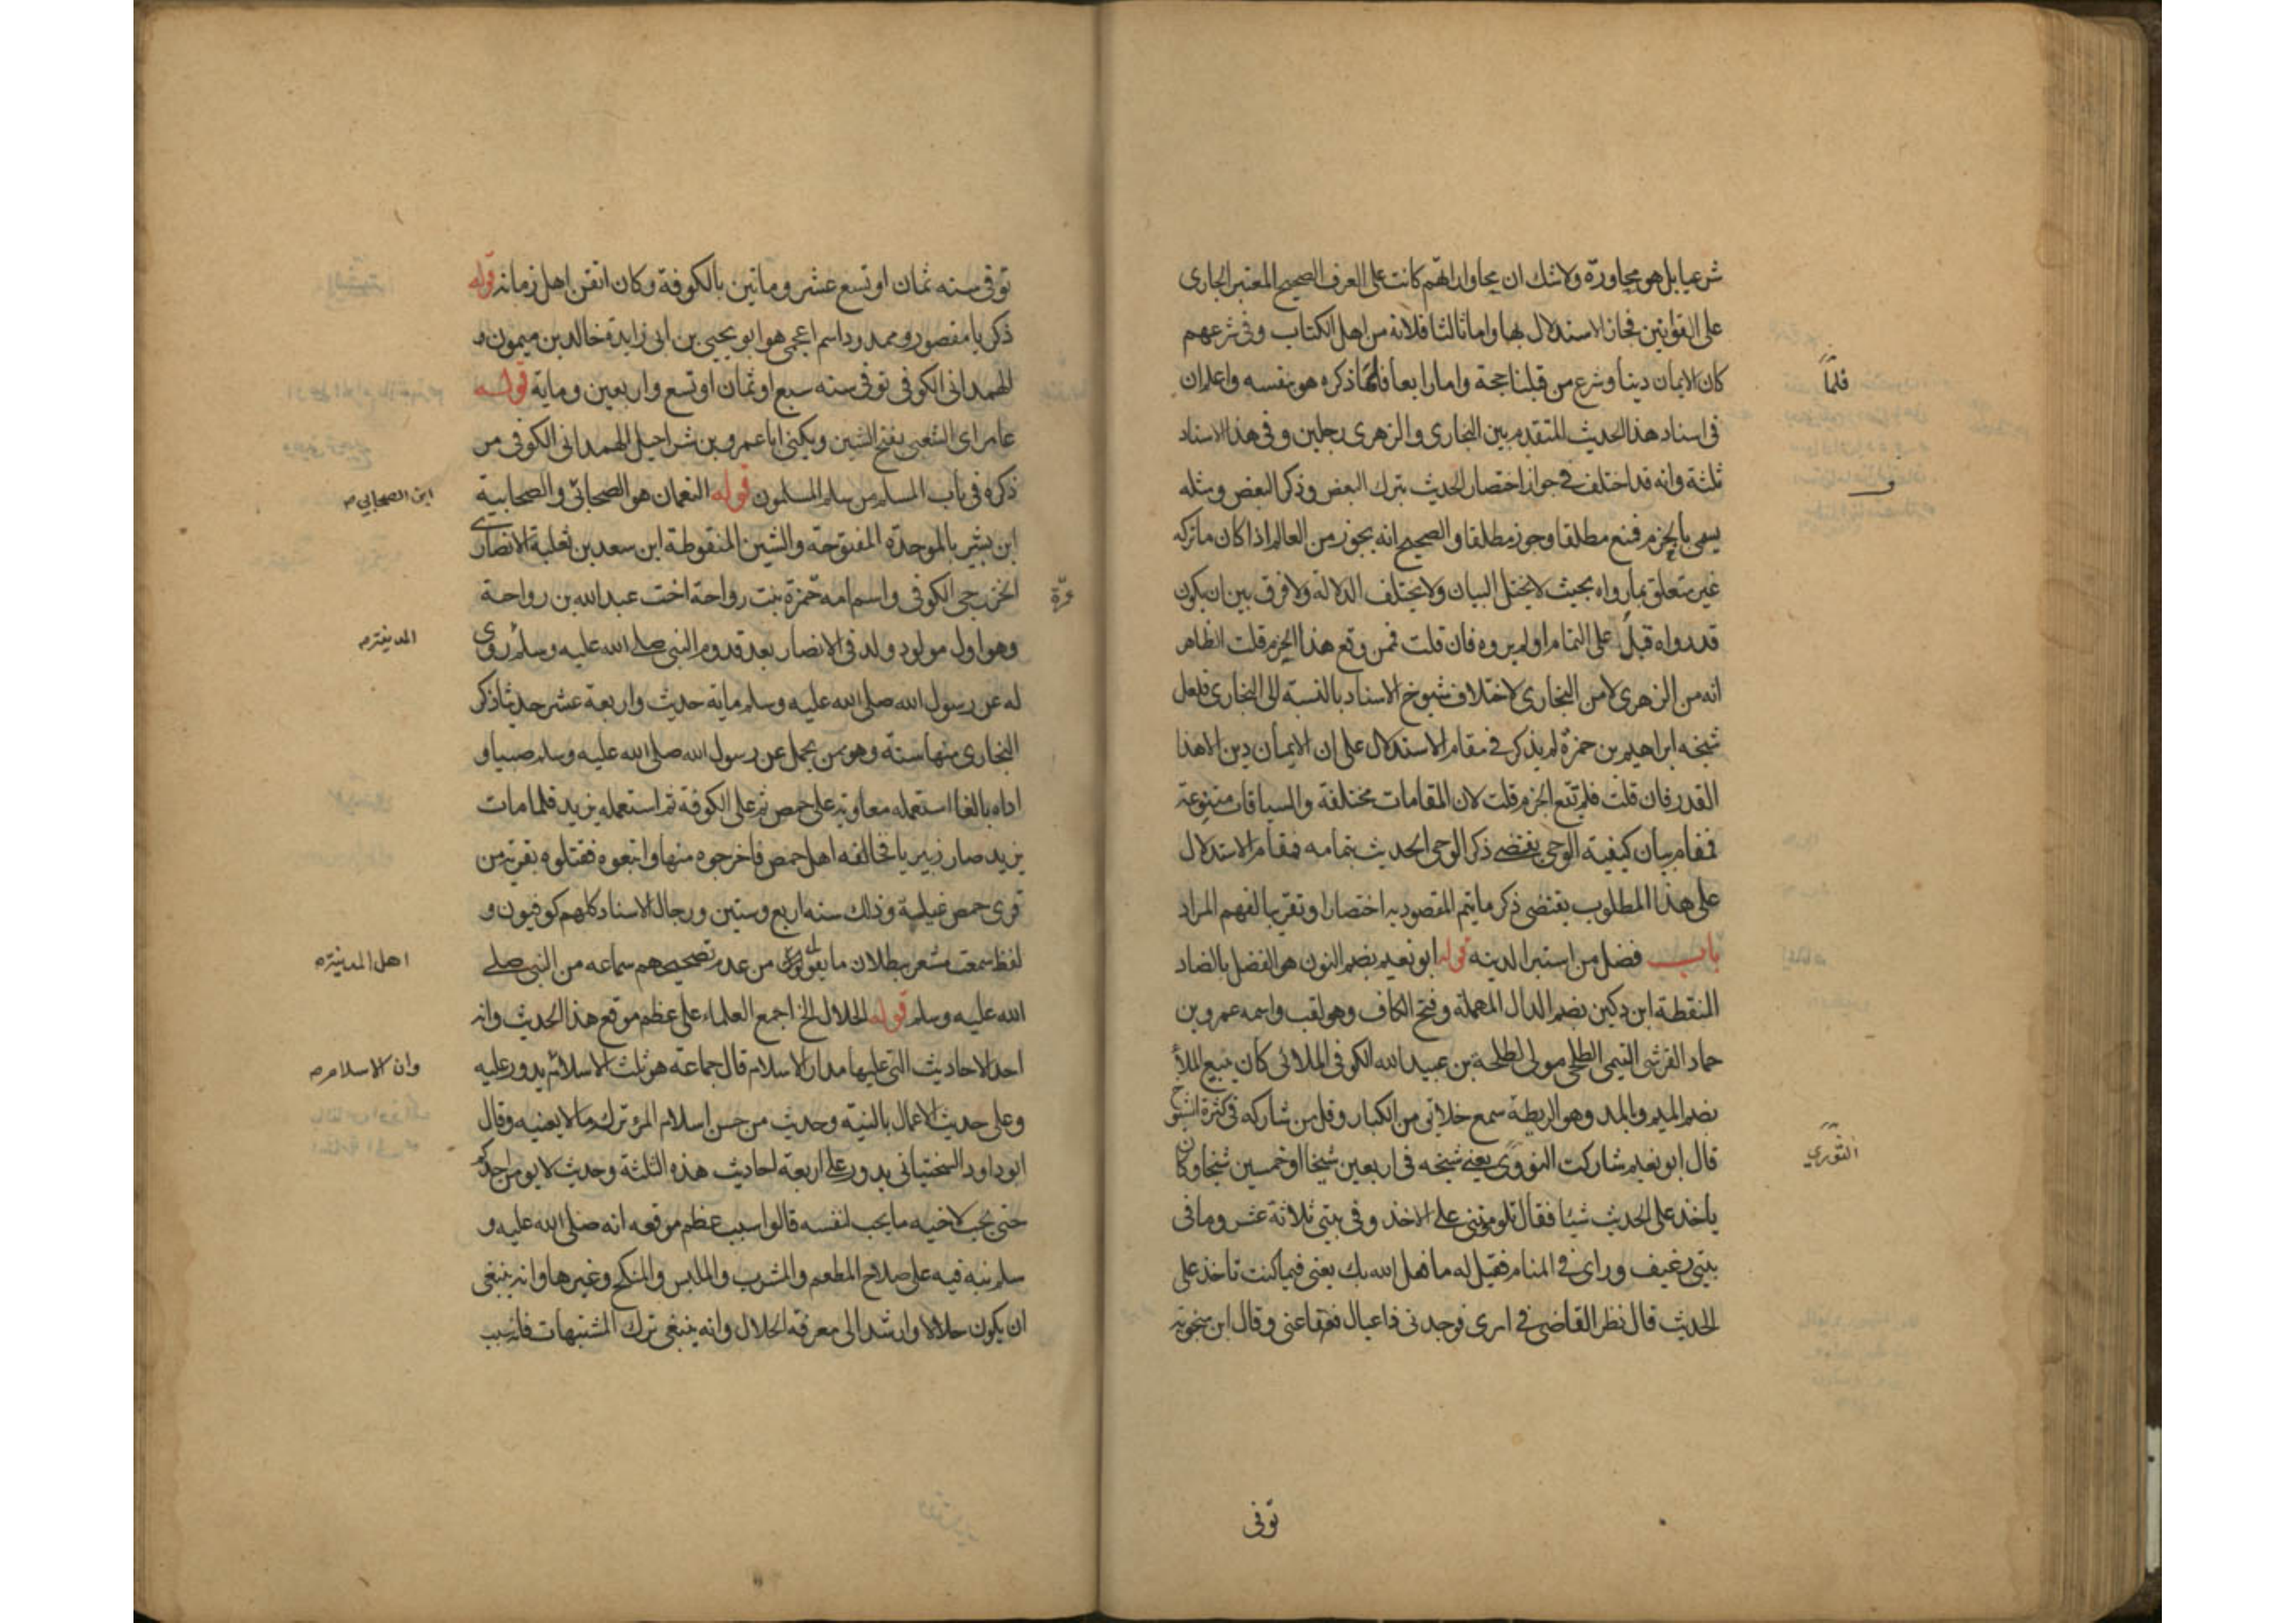 شرعيا بل هو محاورة ولا شك ان محاوراتهم كانت على العرف الصحيح المعتبر الجارى
على القوانين فجاز الاستدلال بها واما ثالثا فلانه من اهل الكتاب وفى شرعهم
كان الايمان دينا وشرع من قبلنا حجة واما رابعا فلما ذكره هو بنفسه واعلم ان
فلما
فى اسناد هذا الحديث المتقدم بين البخارى والزهرى رجلين وفى هذا الاسناد
ثلثة وانه قد اختلف فى جواز اختصار الحديث بترك البعض وذكر البعض ومثله
و
يسمى بالخزم فمنع مطلقا وجوز مطلقا والصحيح انه يجوز من العالم اذا كان ما تركه
غير متعلق بما رواه بحيث لا يختل البيان ولا يختلف الدلالة ولا فرق بين ان يكون
قد رواه قبل على التمام او لم يروه فان قلت فمن وقع هذا الخزم قلت الظاهر
انه من الزهرى لا من البخارى لاختلاف شيوخ الاسناد بالنسبة الى البخارى فلعل
شيخه ابراهيم بن حمزة لم يذكر فى مقام الاستدلال على ان الايمان دين الا هذا
القدر فان قلت فلم تقع الخزم قلت لان المقامات مختلفة والسياقات متنوعة
فمقام بيان كيفية الوحى يقتضى ذكر الوحى الحديث بتمامه فمقام الاستدلال
على هذا المطلوب يقتضى ذكر ما يتم المقصود به اختصارا وتقريبا لفهم المراد
باب فضل من استبرا لدينه قوله ابو نعيم بضم النون هو الفضل بالضاد
المنقطة ابن دكين بضم الدال المهملة وفتح الكاف وهو لقب واسمه عمرو بن
حماد القرشى التيمى الطلحى مولى لطلحة بن عبيد الله الكوفى الملائى كان يبيع الملأ
بضم الميم والمد وهو الريطة سمع خلائق من الكبار وقل من شاركه فى كثرة الشيوخ
قال ابو نعيم شاركت النووى يعنى شيخه فى اربعين شيخا او خمسين شيخا وكان
الثورى
ياخذ على الحديث شيئا فقال تلومننى على الاخذ وفى بيتى ثلاثة عشر وما فى
بيتى رغيف وراى فى المنام فقيل له ما فعل الله بك يعنى فيما كنت تاخذ على
الحديث قال نظر القاضى فى امرى فوجدنى ذا عيال فعفا عنى وقال ابن منجويه
توفى
توفى سنه ثمان او تسع عشر وماتين بالكوفة وكان اتقن اهل زمانه قوله
ذكريا مقصور وممدود اسم اعجمى هو ابو يحيى بن ابى زايدة خالد بن ميمون و
الهمدانى الكوفى توفى سنه سبع او ثمان او تسع واربعين وماية قوله
عامر اى الشعبى بفتح الشين ويكنى ابا عمرو بن شراحيل الهمدانى الكوفى من
ذكره فى باب المسلم من سلم المسلمون قوله النعمان هو الصحابى والصحابية
ابن الصحابى صح
ابن بشير بالموحدة المفتوحة والشين المنقوطة ابن سعد بن ثعلبة الانصارى
الخزرجى الكوفى واسم امه حمزة بنت رواحة اخت عبد الله بن رواحة
عمرة
وهو اول مولود ولد فى الانصار بعد قدوم النبى صلى الله عليه وسلم روى
المدينة صح
له عن رسول الله صلى الله عليه وسلم ماية حديث واربعة عشر حديثا ذكر
البخارى منها ستة وهو ممن يحمل عن رسول الله صلى الله عليه وسلم صبيا و
اداه بالغا استعمله معاوية على حمص ثم على الكوفة ثم استعمله يزيد فلما مات
يزيد صار زبيريا فخالفه اهل حمص فاخرجوه منها واتبعوه فقتلوه بقرية من
قرى حمص غيلة وذلك سنه اربع وستين ورجال الاسناد كلهم كوفيون و
لفظ سمعت مشعر ببطلان ما يقوله من عدم تصحيحهم سماعه من النبى صلى
اهل المدينة صح
الله عليه وسلم قوله الحلال الخ اجمع العلماء على عظم موقع هذا الحديث وانه
احد الاحاديث التى عليها مدار الاسلام قال جماعة هو ثلث الاسلام يدور عليه
وان الاسلام صح
وعلى حديث الاعمال بالنية وحديث من حسن اسلام المرء تركه ما لا يعنيه وقال
ابو داود السختيانى يدور على اربعة احاديث هذه الثلثة وحديث لا يومن احدكم
حتى يحب لاخيه ما يحب لنفسه قالوا سبب عظم موقعه انه صلى الله عليه و
سلم نبه فيه على صلاح المطعم والمشرب والملبس والمنكح وغيرها وانه ينبغى
ان يكون حلالا وارشد الى معرفة الحلال وانه ينبغى ترك المشتبهات فانه سبب